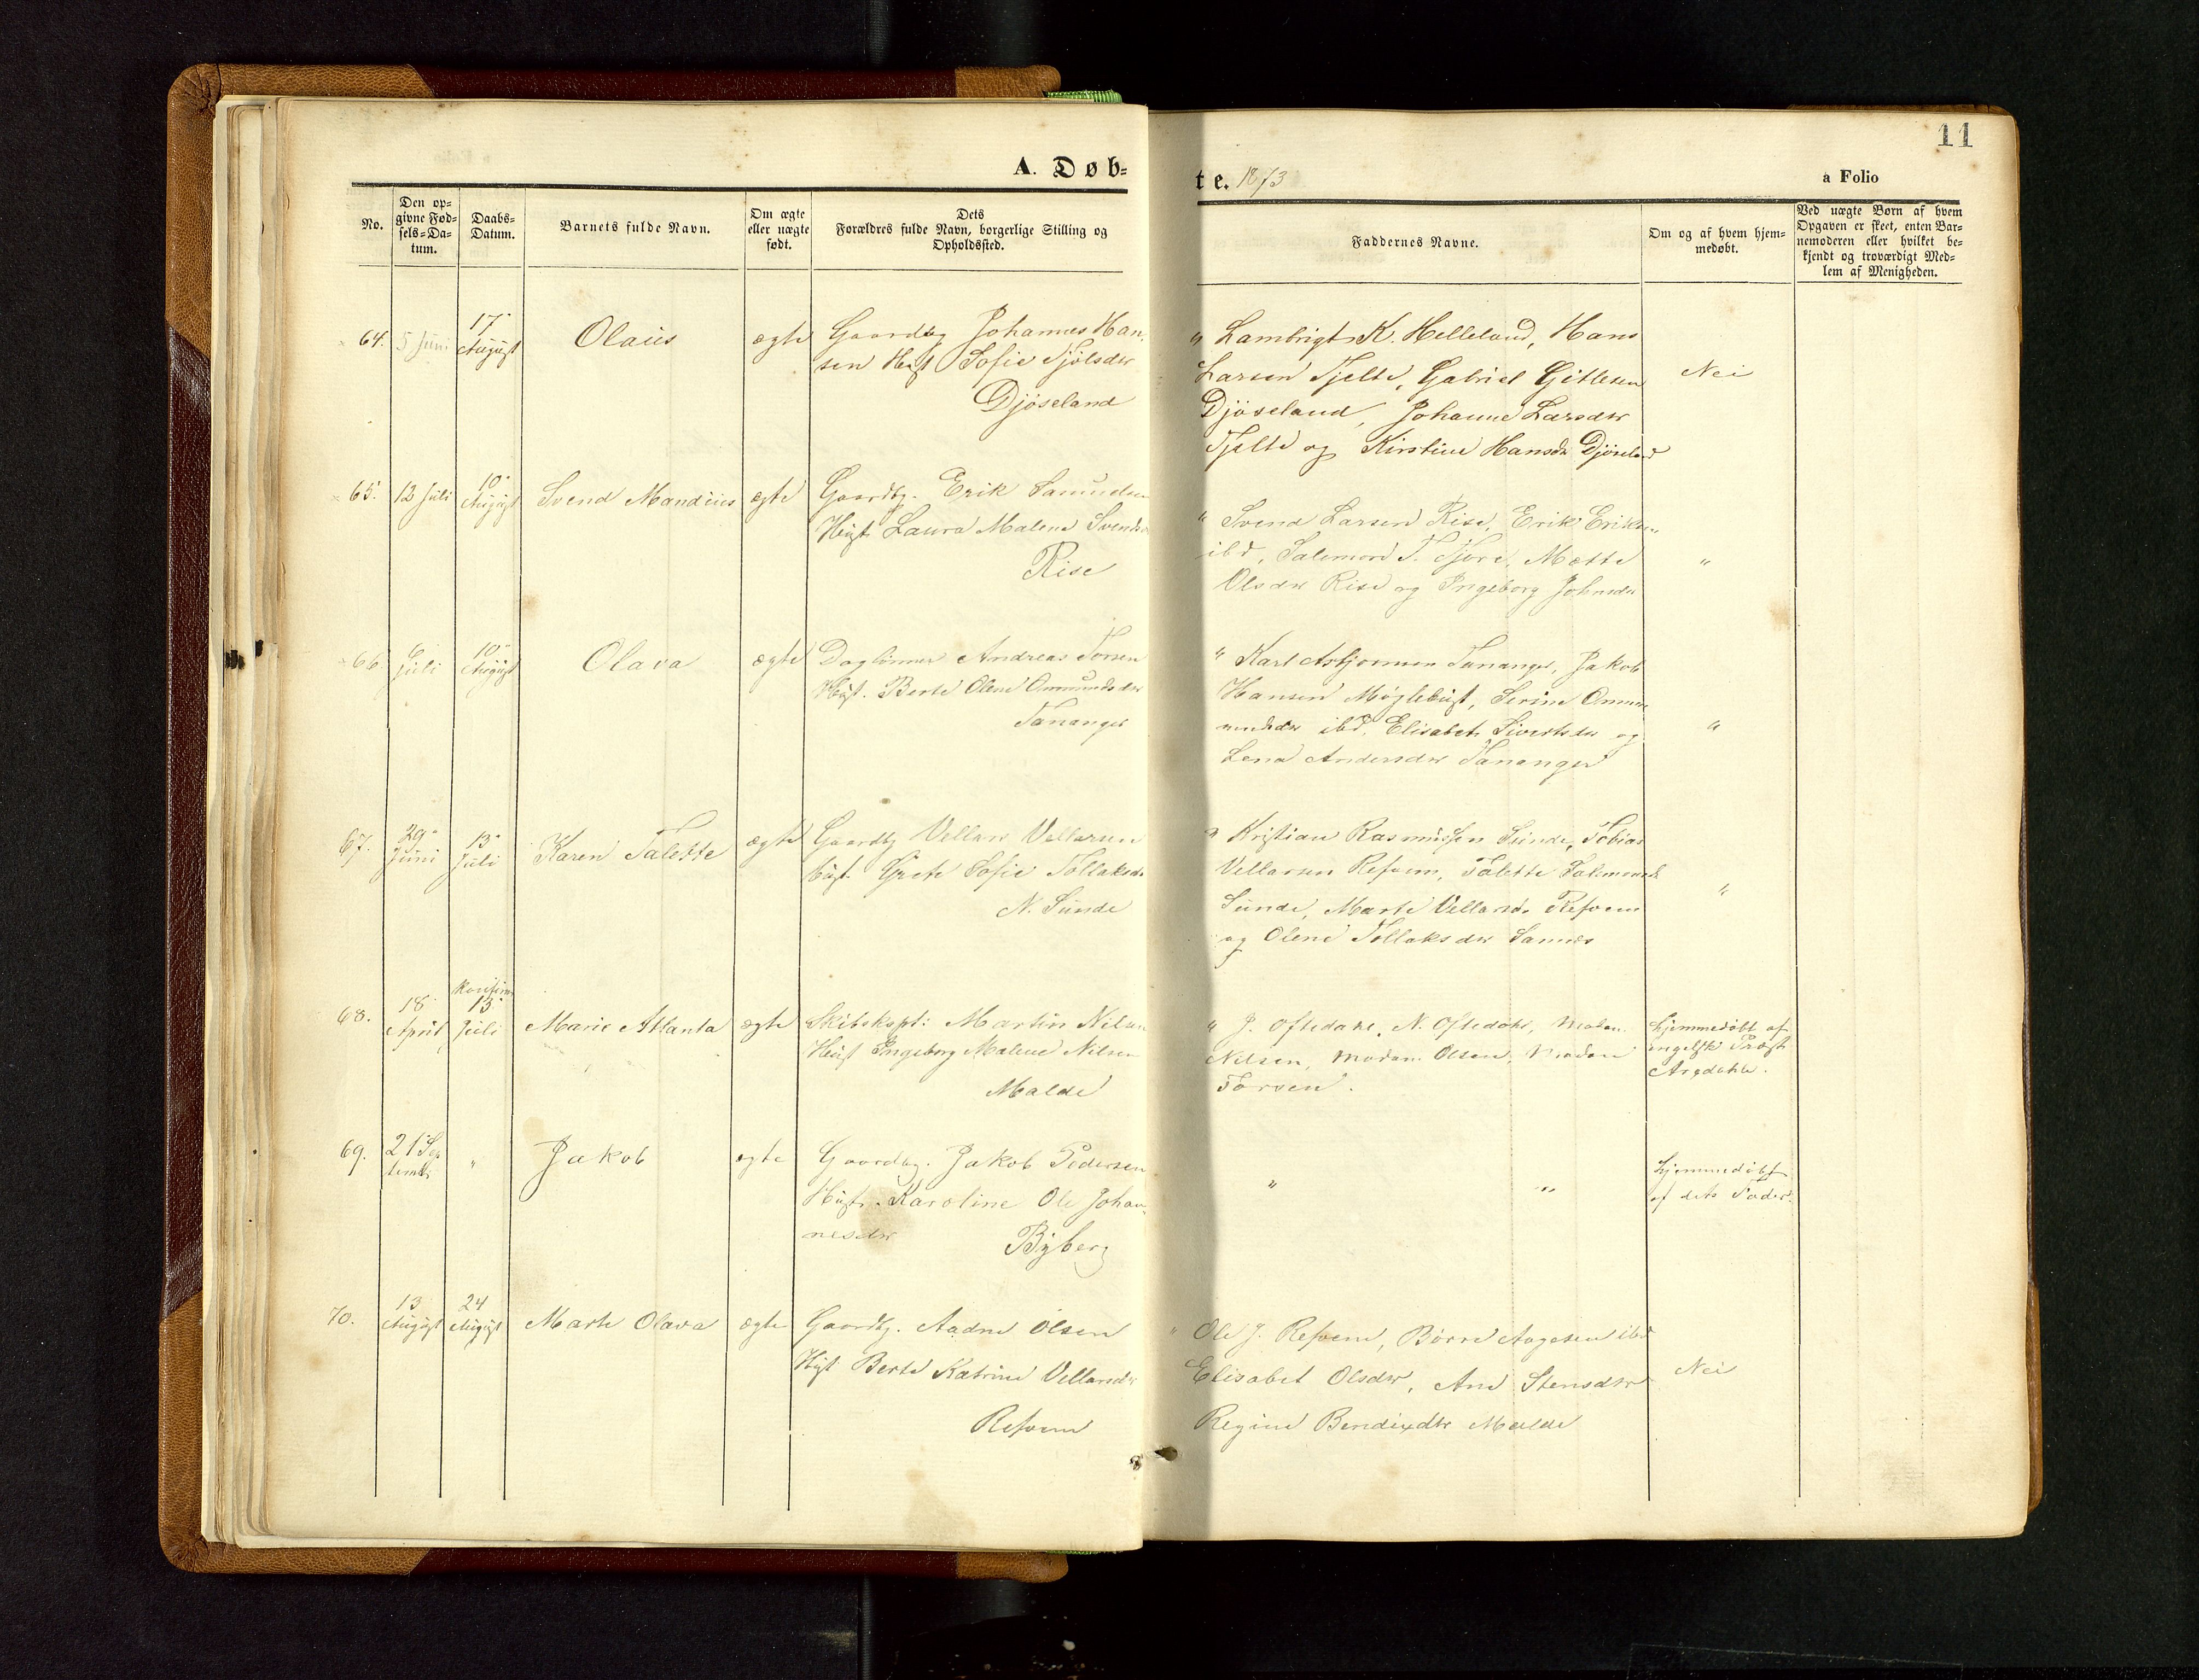 11
A. Døb-
te. 1873
a Folio
No.
Den op-
givne Fød-
sels-Da-
tum.
Daabs-
Datum.
Barnets fulde Navn.
Om ægte
eller uægte
født.
Dets
Forældres fulde Navn, borgerlige Stilling og
Opholdssted.
Faddernes Navne.
Om og af hvem hjem-
medøbt.
Ved uægte Børn af hvem
Opgaven er skeet, enten Bar-
nemoderen eller hvilket be-
kjendt og troværdigt Med-
lem af Menigheden.
64. 5 Juni 17 August Olaus ægte
Gaardbg Johannes Han-
sen Hust Sofie Tjølsdtr
Djöseland
" Lambrigt K. Helleland, Hans
Larsen Tjelte, Gabriel Gitlesen
Djöseland, Johanne Larsdtr
Tjelte og Kirstine Hansd. Djöseland
Nei
65. 12 Juli 10 August Svend Mandius ægte
Gaardbg. Erik Samuelsen
Hust Laura Malene Svendsd
Rise
" Svend Larsen Rise, Erik Eriksen
ibd, Salemon T. Tjore, Mætte
Olsdtr Rise og Ingeborg Johnsdtr
"
66 6 Juli 10 August Olava ægte
Daglönner Andreas Torsen
Hust. Berte Olene Ommundsdtr
Tananger
" Karl Asbjornsen Tananger, Jakob
Hansen Myglebust, Serine Ommun
mundsdtr ibd, Elisabet Sivertsdtr og
Lena Andersdtr Tananger
"
67. 29 Juni 13 Juli Karen Talette ægte
Gaardbg Vellars Vellarsen
Hust. Grete Sofie Tollaksd.
N. Sunde
" Kristian Rasmussen Sunde, Tobias
Vellarsen Refvem, Talette Salemonsd.
Sunde, Marte Vellarsd. Refvem
og Olene Tollaksdtr Sannes
"
68. 18 April 13 Juli Marie Atlanta ægte
Skibskpt: Martin Nilsen
Hust Ingeborg Malene Nilsen
Malde
" J. Oftedahl, N. Oftedahl, Madam
Nilsen, Madam Olsen, Madam
Torsen.
hjemmedöbt af
engelsk Præst
69. 21 Sep
tember " Jakob ægte
Gaardbg. Jakob Pedersen
Hust. Karoline Ole Johan-
nesdtr
Byberg
" "
hjemmedöbt
af dets Fader.
70. 13 August 24 August Marte Olava ægte
Gaardbg. Aadne Olsen
Hust Berte Katrine Vellarsdtr
Refvem
" Ole J. Refvem, Börre Aagesen ibd
Elisabet Olsdtr, Ane Stensdtr
Regine Bendixdtr Malde
Nei